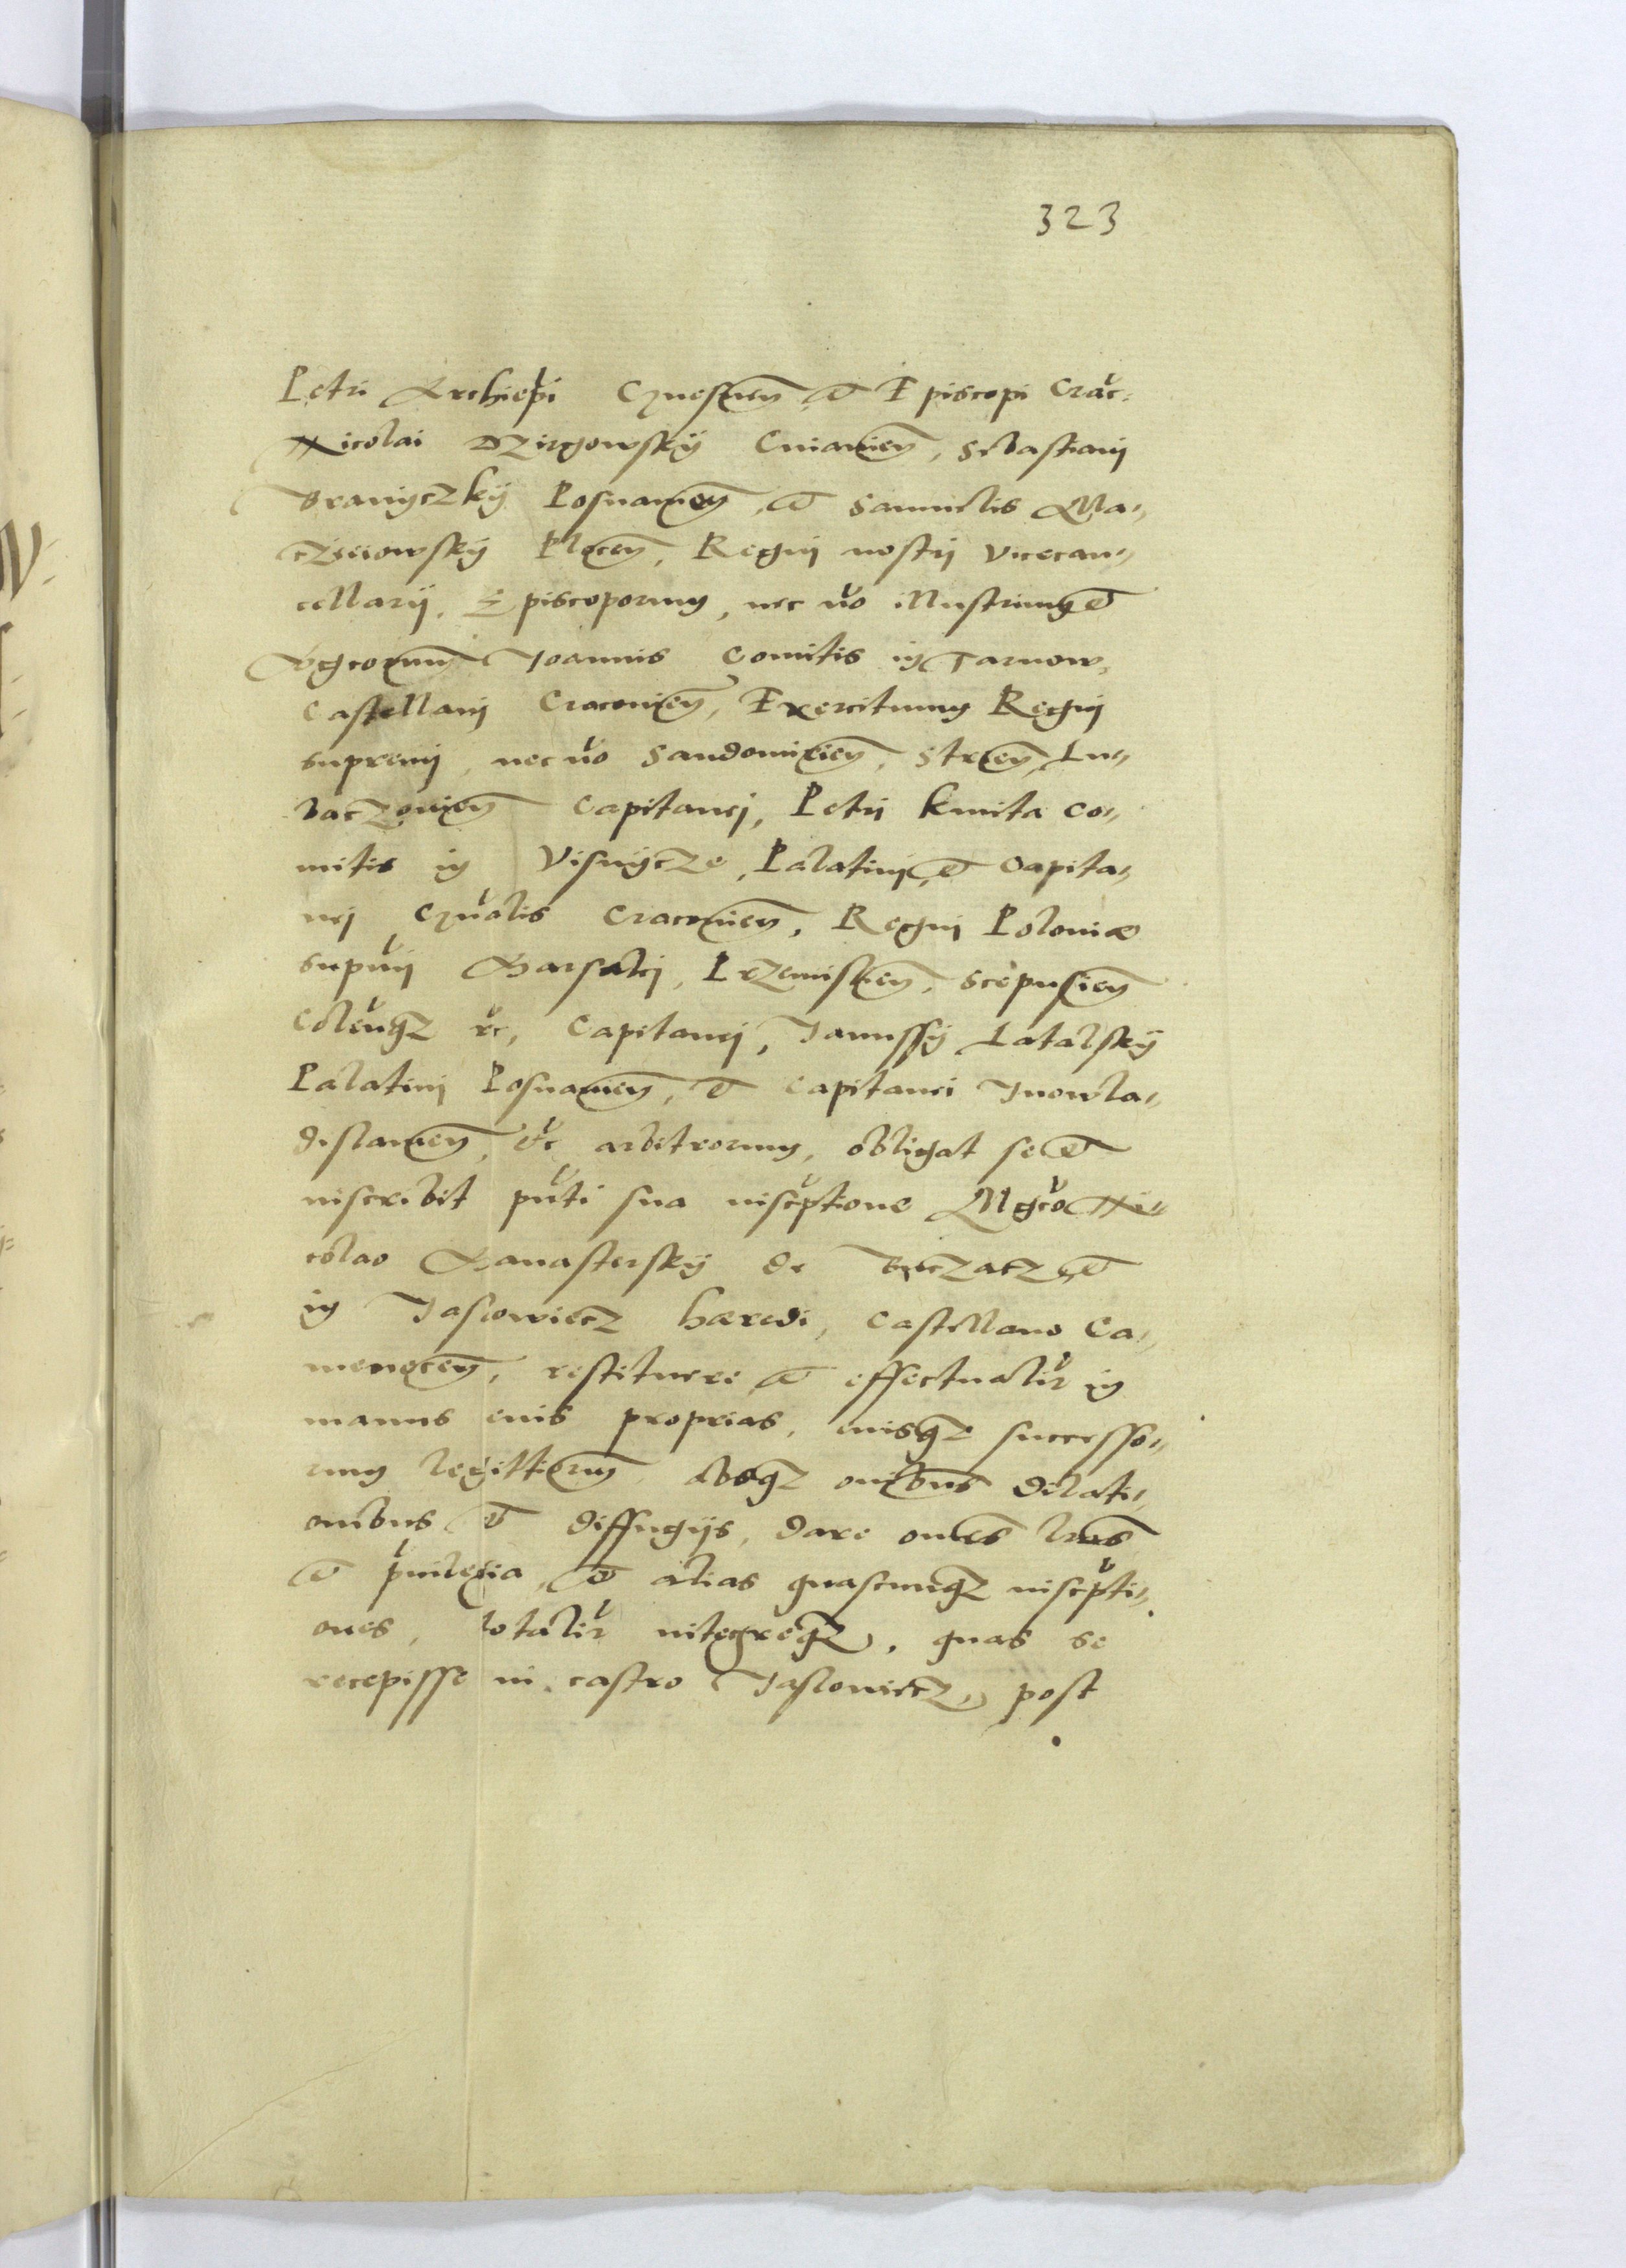 323
Petri Archiepi Gnesnen et Episcopi Crac:
Nicolai Dzirgowskÿ Cuiavien, Sebastiani
Braniczkÿ Posnanien, et Samuelis Ma„
czieiowskÿ Plocen, Regni nostri Vicecan„
cellarÿ, Episcoporum, nec no illustrium et
Mgcorum Joannis Comitis in Tarnow,
Castellani Cracovien, Exercituum Regni
supremi, nec no Sandomirien, Strien, Lu„
baczovien Capitanei, Petri Kmita Co„
mitis in Visnÿcze, Palatini, et Capita„
nei Gnalis Cracovien, Regni Poloniæ
supmi Marsalci, Przemislien, Scepusien
Colenqz etc, Capitanei, Janussÿ Latalskÿ
Palatini Posnanien, et Capitanei Inowla„
dislavien, etc arbitrorum, obligat se et
inscribit pnti sua inscptione Mgco Ni„
colao Manasterskÿ de Buczacz, et
in Jaslowiecz hæredi, Castellano Ca„
menecen, restituere, et effectualir in
manus eius proprias, eiusqz successo„
rum legittimorum, absqz omibus dilati„
onibus et diffugijs, dare omes lras
et priuilegia, et alias quascunqz inscpti„
ones, totalir integreqz, quas se
recepisse in castro Jaslowiecz, post